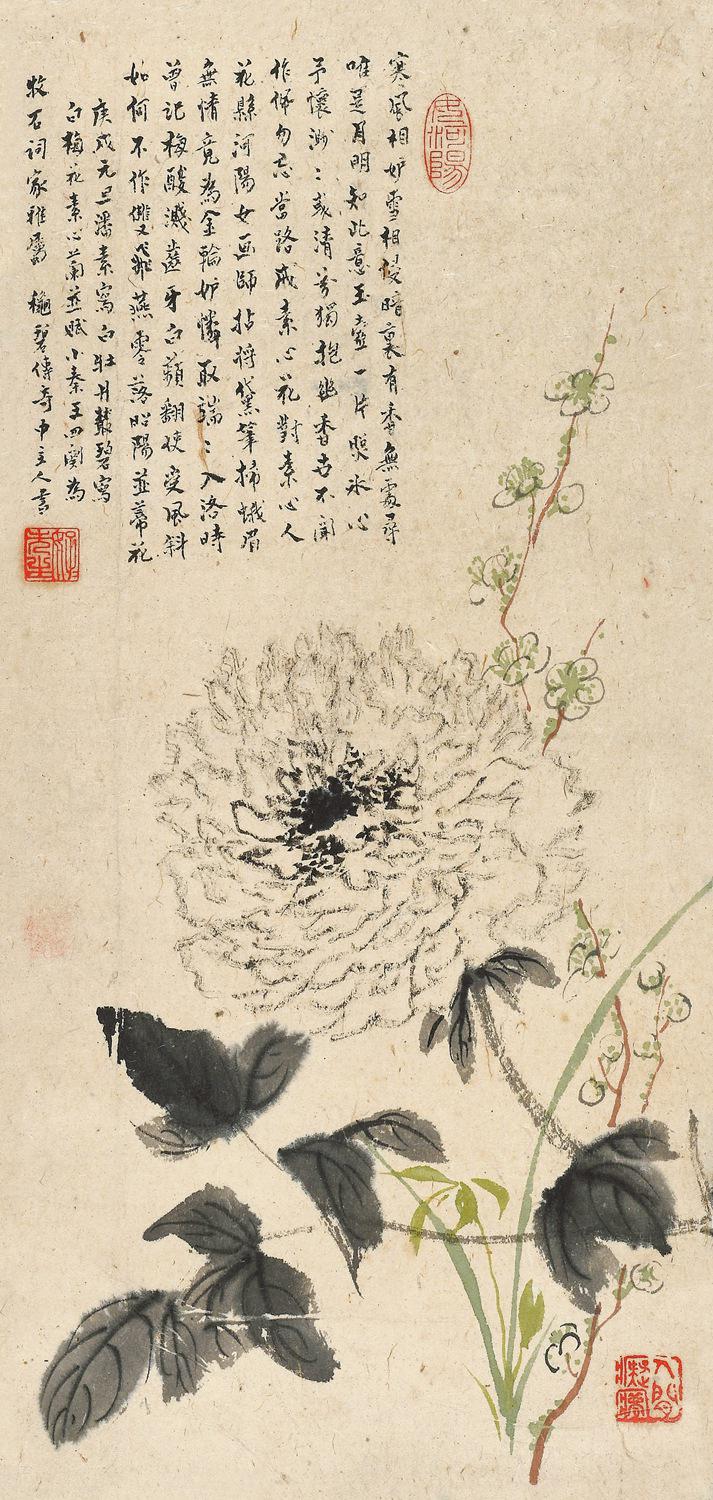 寒風相妒雪相侵暗裏有香無處尋
唯是月明知此意玉壺一片照冰心
予懷渺〻或清芬獨抱幽香世不聞
作佩勿忘當路戒素心花對素心人
花縣河陽女畫師拈將黛筆掃蛾眉
無情竟為金輪妒憐取端〻入洛時
曾記梅酸濺齒牙白蘋翻使受風斜
如何不作雙飛燕零落昭陽並蒂花
庚戌元旦潘素寫白牡丹叢碧寫
白梅花素心蘭並賦小秦王四闋為
牧石詞家雅屬 叢碧傳奇中主人書